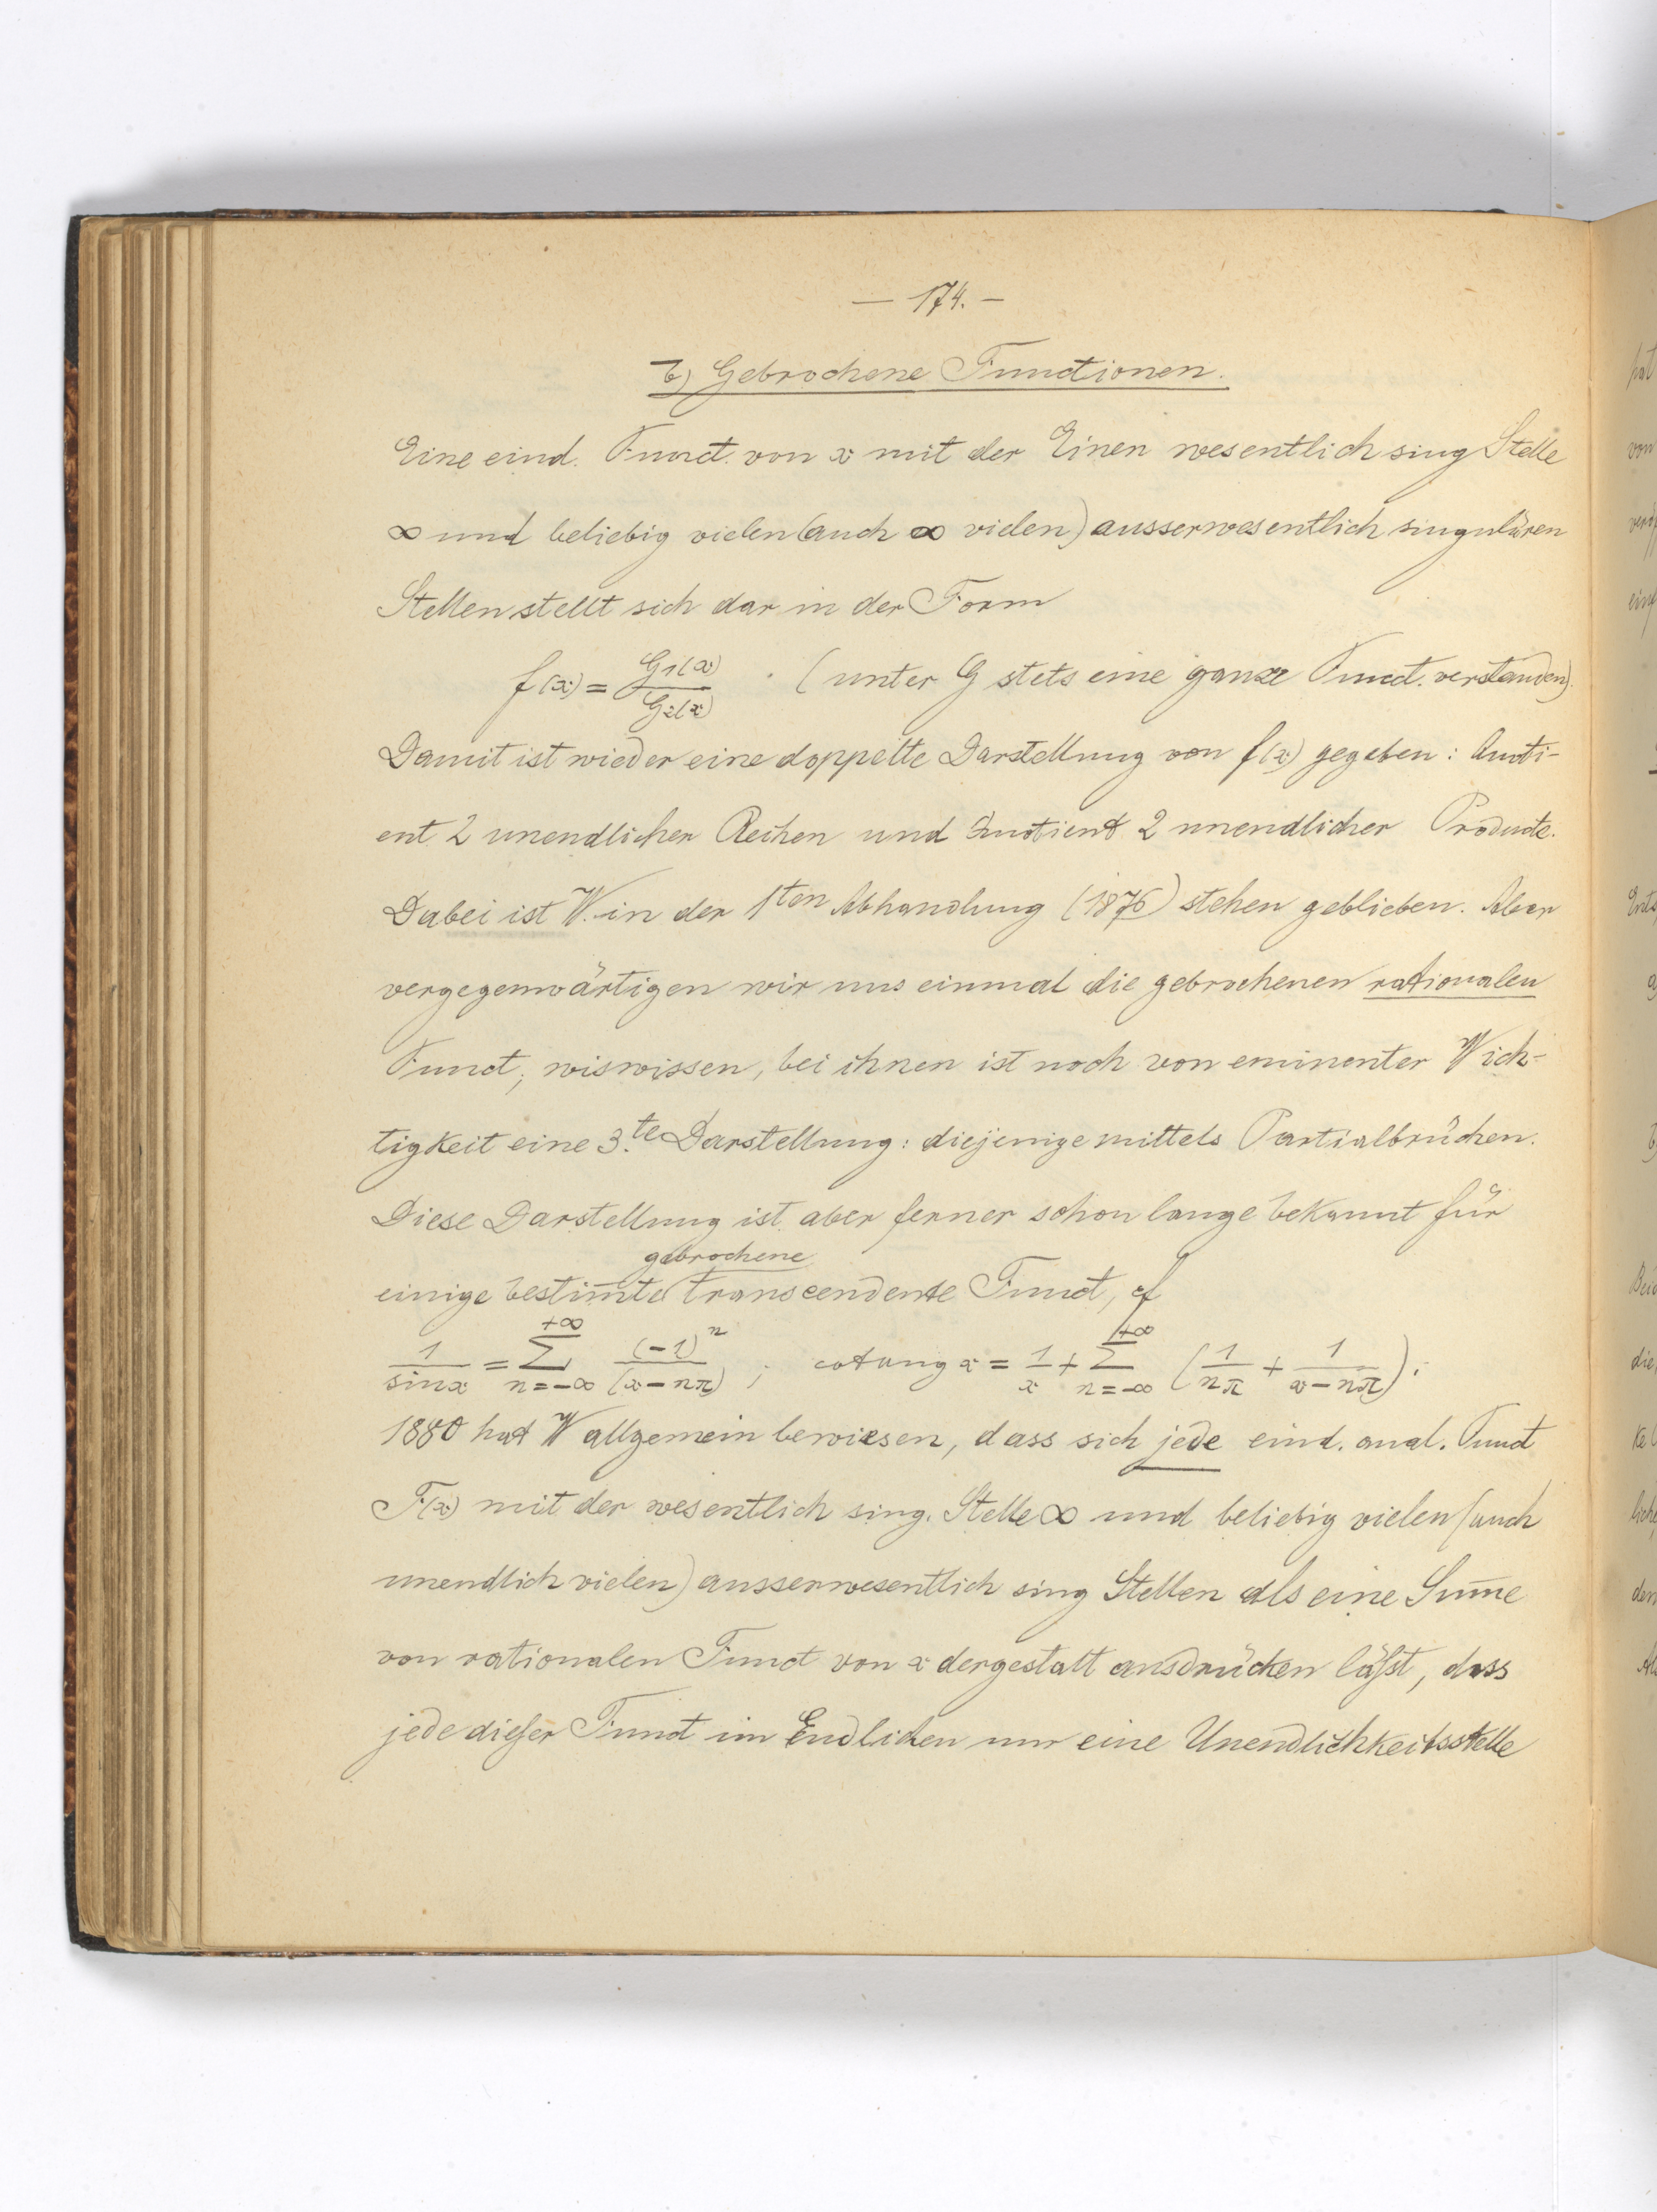 — 174. —
b) Gebrochene Functionen.
Eine eind. Funct. von x mit der Einen wesentlich sing Stelle
∞ und beliebig vielen (auch ∞ vielen) ausserwesentlich singulären
Stellen stellt sich dar in der Form
f(x) = G₁(x)/G₂(x) . (unter G stets eine ganze Funct. verstanden).
Damit ist wieder eine doppelte Darstellung von f(x) gegeben: Quoti-
ent 2 unendlicher Reihen und Quotient 2 unendlicher Producte.
Dabei ist W. in der 1ten Abhandlung (1876) stehen geblieben. Aber
vergegenwärtigen wir uns einmal die gebrochenen rationalen
Funct; wir wissen, bei ihnen ist noch von eminenter Wich-
tigkeit eine 3.te Darstellung: diejenige mittels Partialbrüchen.
Diese Darstellung ist aber ferner schon lange bekannt für
gebrochene
einige bestim̄te transcendente Funct, cf
1/sin x = Σ_{n=-∞}^{+∞} (-1)^n/(x-nπ) ; cotang x = 1/x + Σ_{n=-∞}^{+∞} (1/nπ + 1/(x-nπ)).
1880 hat W allgemein bewiesen, dass sich jede eind. anal. Funct
F(x) mit der wesentlich sing. Stelle ∞ und beliebig vielen (auch
unendlich vielen) ausserwesentlich sing Stellen als eine Sum̄e
von rationalen Funct von x dergestalt ausdrücken läſst, dass
jede dieſer Funct im Endlichen nur eine Unendlichkeitsstelle
hat
von